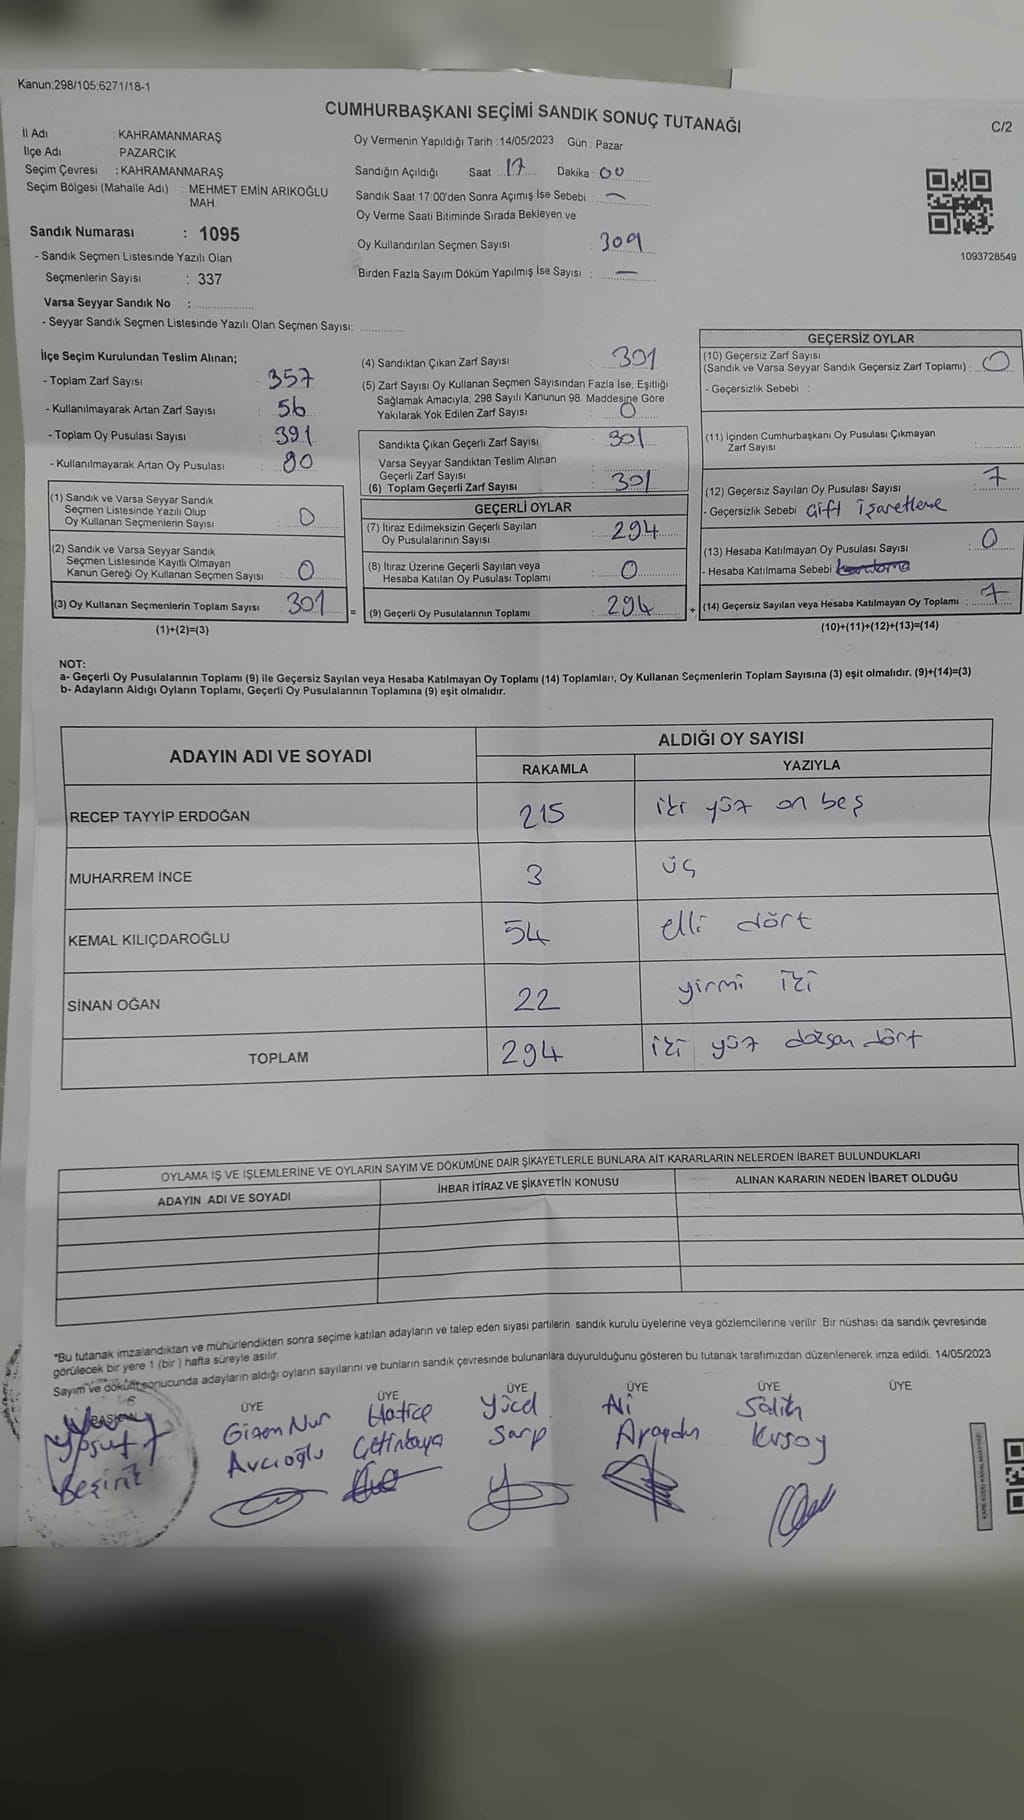 Kanun;298/105;6271/18-1
CUMHURBAŞKANI SEÇİMİ SANDIK SONUÇ TUTANAĞI
C/2
İl Adı : KAHRAMANMARAŞ
İlçe Adı : PAZARCIK
Seçim Çevresi : KAHRAMANMARAŞ
Seçim Bölgesi (Mahalle Adı) : MEHMET EMİN ARIKOĞLU
MAH.
Sandık Numarası : 1095
- Sandık Seçmen Listesinde Yazılı Olan
Seçmenlerin Sayısı : 337
Varsa Seyyar Sandık No :
- Seyyar Sandık Seçmen Listesinde Yazılı Olan Seçmen Sayısı:
Oy Vermenin Yapıldığı Tarih : 14/05/2023 Gün : Pazar
Sandığın Açıldığı Saat : 17 Dakika : 00
Sandık Saat 17:00'den Sonra Açımış İse Sebebi : —
Oy Verme Saati Bitiminde Sırada Bekleyen ve
Oy Kullandırılan Seçmen Sayısı : 309
Birden Fazla Sayım Döküm Yapılmış İse Sayısı : —
1093728549
İlçe Seçim Kurulundan Teslim Alınan;
- Toplam Zarf Sayısı : 357
- Kullanılmayarak Artan Zarf Sayısı : 56
- Toplam Oy Pusulası Sayısı : 391
- Kullanılmayarak Artan Oy Pusulası : 90
(1) Sandık ve Varsa Seyyar Sandık
Seçmen Listesinde Yazılı Olup
Oy Kullanan Seçmenlerin Sayısı : 0
(2) Sandık ve Varsa Seyyar Sandık
Seçmen Listesinde Kayıtlı Olmayan
Kanun Gereği Oy Kullanan Seçmen Sayısı : 0
(3) Oy Kullanan Seçmenlerin Toplam Sayısı : 301
(1)+(2)=(3)
(4) Sandıktan Çıkan Zarf Sayısı : 301
(5) Zarf Sayısı Oy Kullanan Seçmen Sayısından Fazla İse, Eşitliği
Sağlamak Amacıyla; 298 Sayılı Kanunun 98. Maddesine Göre
Yakılarak Yok Edilen Zarf Sayısı : 0
Sandıkta Çıkan Geçerli Zarf Sayısı : 301
Varsa Seyyar Sandıktan Teslim Alınan
Geçerli Zarf Sayısı
(6) Toplam Geçerli Zarf Sayısı : 301
GEÇERLİ OYLAR
(7) İtiraz Edilmeksizin Geçerli Sayılan
Oy Pusulalarının Sayısı : 294
(8) İtiraz Üzerine Geçerli Sayılan veya
Hesaba Katılan Oy Pusulası Toplamı : 0
= (9) Geçerli Oy Pusulalarının Toplamı : 294
GEÇERSİZ OYLAR
(10) Geçersiz Zarf Sayısı
(Sandık ve Varsa Seyyar Sandık Geçersiz Zarf Toplamı) : 0
- Geçersizlik Sebebi :
(11) İçinden Cumhurbaşkanı Oy Pusulası Çıkmayan
Zarf Sayısı
(12) Geçersiz Sayılan Oy Pusulası Sayısı : 7
- Geçersizlik Sebebi Çift işaretleme
(13) Hesaba Katılmayan Oy Pusulası Sayısı : 0
- Hesaba Katılmama Sebebi
+ (14) Geçersiz Sayılan veya Hesaba Katılmayan Oy Toplamı : 7
(10)+(11)+(12)+(13)=(14)
NOT:
a- Geçerli Oy Pusulalarının Toplamı (9) ile Geçersiz Sayılan veya Hesaba Katılmayan Oy Toplamı (14) Toplamları, Oy Kullanan Seçmenlerin Toplam Sayısına (3) eşit olmalıdır. (9)+(14)=(3)
b- Adayların Aldığı Oyların Toplamı, Geçerli Oy Pusulalarının Toplamına (9) eşit olmalıdır.
ADAYIN ADI VE SOYADI ALDIĞI OY SAYISI
RAKAMLA YAZIYLA
RECEP TAYYİP ERDOĞAN 215 iki yüz on beş
MUHARREM İNCE 3 üç
KEMAL KILIÇDAROĞLU 54 elli dört
SİNAN OĞAN 22 yirmi iki
TOPLAM 294 iki yüz doksan dört
OYLAMA İŞ VE İŞLEMLERİNE VE OYLARIN SAYIM VE DÖKÜMÜNE DAİR ŞİKAYETLERLE BUNLARA AİT KARARLARIN NELERDEN İBARET BULUNDUKLARI
ADAYIN ADI VE SOYADI İHBAR İTİRAZ VE ŞİKAYETİN KONUSU ALINAN KARARIN NEDEN İBARET OLDUĞU
*Bu tutanak imzalandıktan ve mühürlendikten sonra seçime katılan adayların ve talep eden siyasi partilerin sandık kurulu üyelerine veya gözlemcilerine verilir. Bir nüshası da sandık çevresinde
görülecek bir yere 1 (bir) hafta süreyle asılır.
Sayım ve döküm sonucunda adayların aldığı oyların sayılarını ve bunların sandık çevresinde bulunanlara duyurulduğunu gösteren bu tutanak tarafımızdan düzenlenerek imza edildi. 14/05/2023
BAŞKAN ÜYE ÜYE ÜYE ÜYE ÜYE ÜYE
Yusuf Gizem Nur Hatice Yücel Ali Salih
Avcıoğlu Çetinkaya Sarp Kırsoy